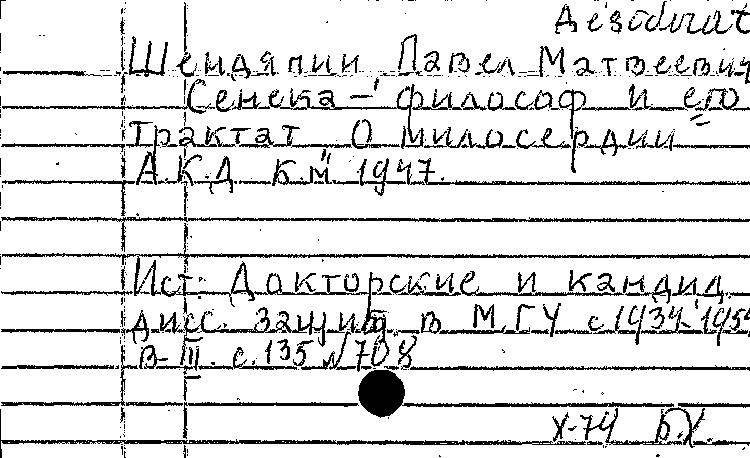 Шендяпин Павел Матвеевич
Сенека – философ и его
трактат "О милосердии"
А.К.Д б.м 1947.
Ист: Докторские и кандид
дисс. защищ. в МГУ с 1934-1954
В-III. с.135 №708
X-74 Б.Х.